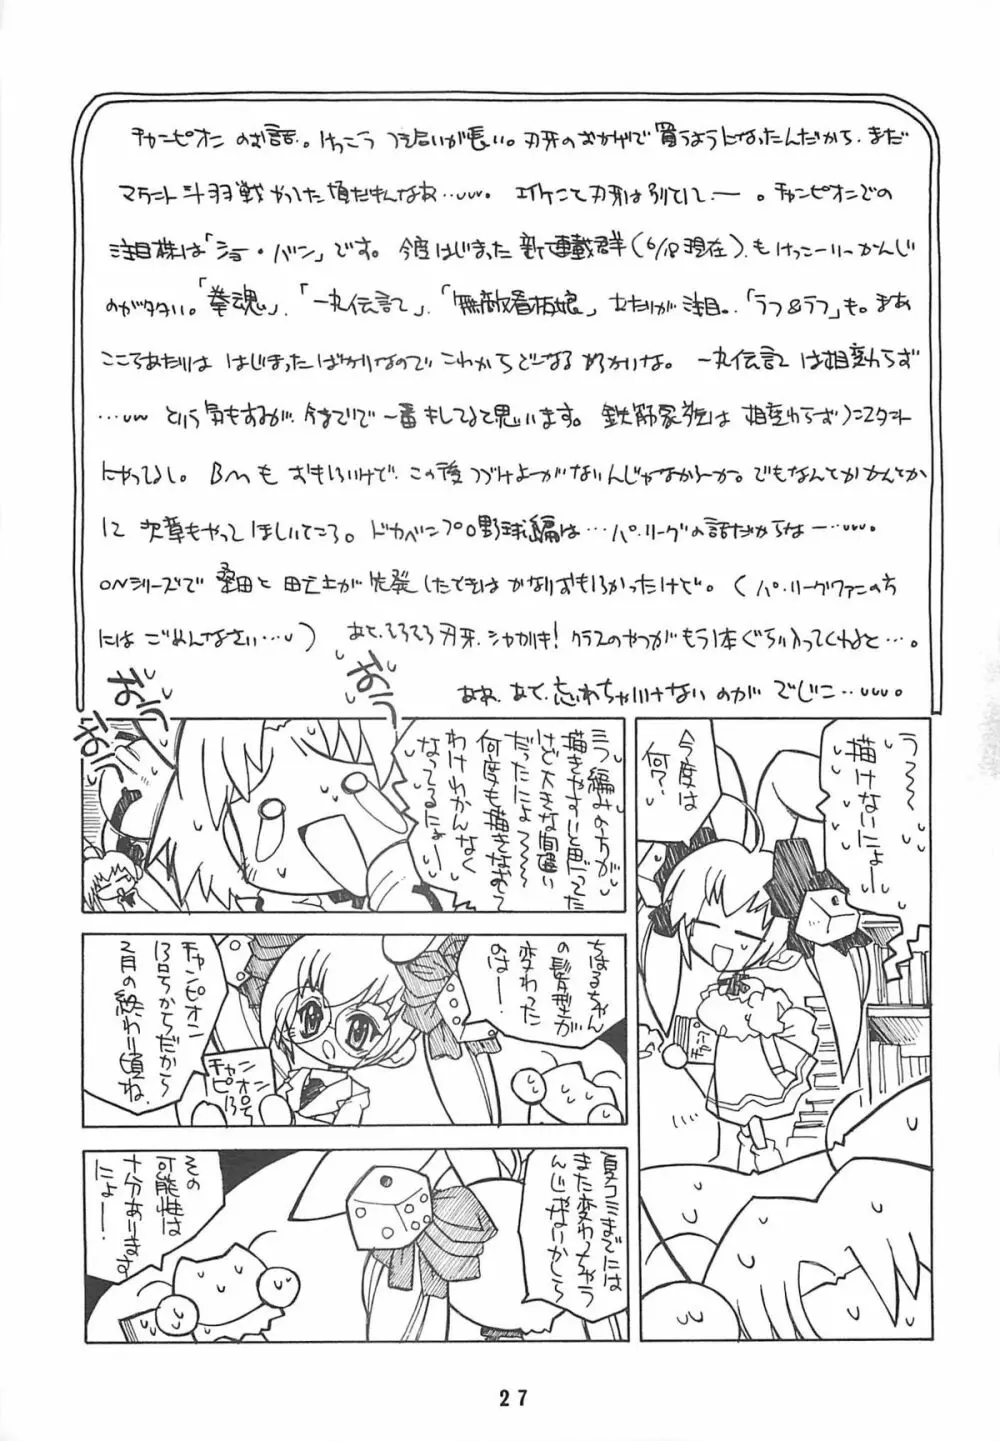 チャンピオンのお話。けっこうつき合いが長い。刃牙のおかげで買うようになったんだから、まだ
マウント斗羽戦やってた頃だもんなあ…
チャンピオンでの
注目株は「ショー・バン」です。今度はじまった新連載群(6/18現在)もけっこーいーかんじ
のがタタい。「拳魂」、「一丸伝記」、「無敵看板娘」あたりが注目。「ラブ&ラブ」も。まあ
ここらあたりははじまったばかりなのでこれからどーなるか
一丸伝記は相変わらず
…という気もするが、今まででで一番キしてると思います。鉄筋家族は相変わらず
にやってるし。BMもおもしろいけど、この後つづけよーがないんじゃなかろーか。でもなんとかかんとか
に次章もやってほしいところ。ドカベンプロ野球編は…パ・リーグの話だからなー…
ONシリーズで桑田と
が先発したときはかなりおもしろかったけど。(パ・リーグファンの方
にはごめんなさい…)あと、そろそろ刃牙、シャカリキ!クラスのやつがもう1本ぐらい入ってくれると…。
ああ、あと、忘れちゃいけないのがでじこ…。
うう〜
描けないにょー
今度は
何?
三つ編みの方が
描きやすいと思ってた
けど大きな間違い
だったにょう〜
何度も描きなおして
わけわかんなく
なってるにょー
おうっ
おうっ
おうっ
ちはるちゃん
の髪型が
変わってた
のはー
チャンピオン
13号からだから
2月の終わり頃ね。
チャン
ピオン
13号
チャン
夏コミまでには
また変わっちゃう
んじゃないかしら
その
可能性は
十分あります
にょー
27